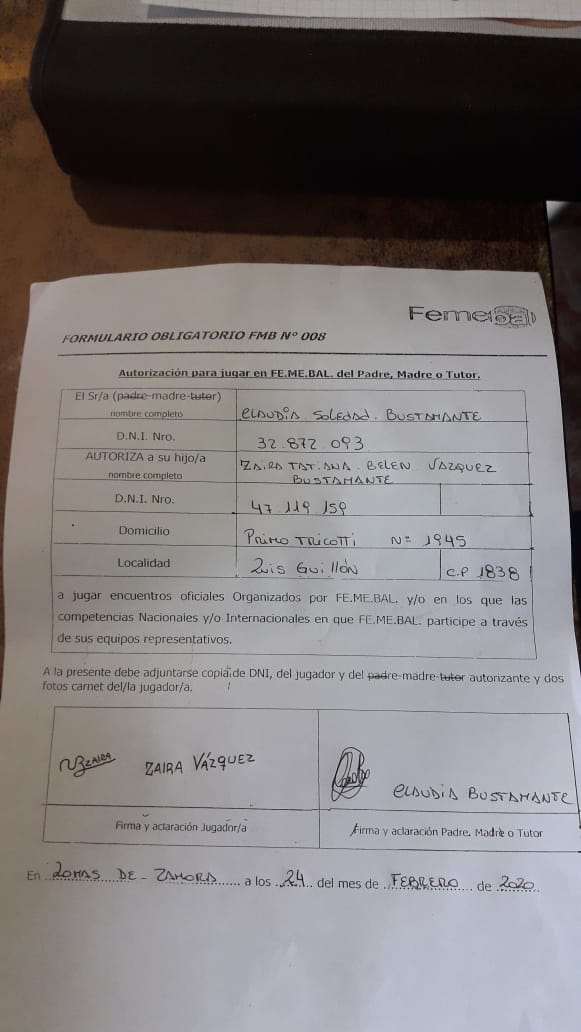 Feme
FORMULARIO OBLIGATORIO FMB N° 008
Autorización para jugar en FE.ME.BAL. del Padre, Madre o Tutor.
El Sr/a (padre-madre-tutor)
nombre completo
CLAUDIA SOLEDAD. BUSTAMANTE
D.N.I. Nro.
32.872.093
AUTORIZA a su hijo/a
nombre completo
ZAIRA TATIANA. BELEN VAZQUEZ
BUSTAMANTE
D.N.I. Nro.
47 119 159
Domicilio
Primo Tricotti N= 1945
Localidad
Luis Guillón
C.P 1838
a jugar encuentros oficiales Organizados por FE.ME.BAL. y/o en los que las
competencias Nacionales y/o Internacionales en que FE.ME.BAL. participe a través
de sus equipos representativos.
A la presente debe adjuntarse copia de DNI, del jugador y del padre-madre-tutor autorizante y dos
fotos carnet del/la jugador/a.
ZAIRA
ZAIRA VÁZQUEZ
CLAUDIA BUSTAMANTE
Firma y aclaración Jugador/a
Firma y aclaración Padre. Madre o Tutor
En LOMAS DE - ZAMORA a los 24 del mes de FEBRERO de 2020